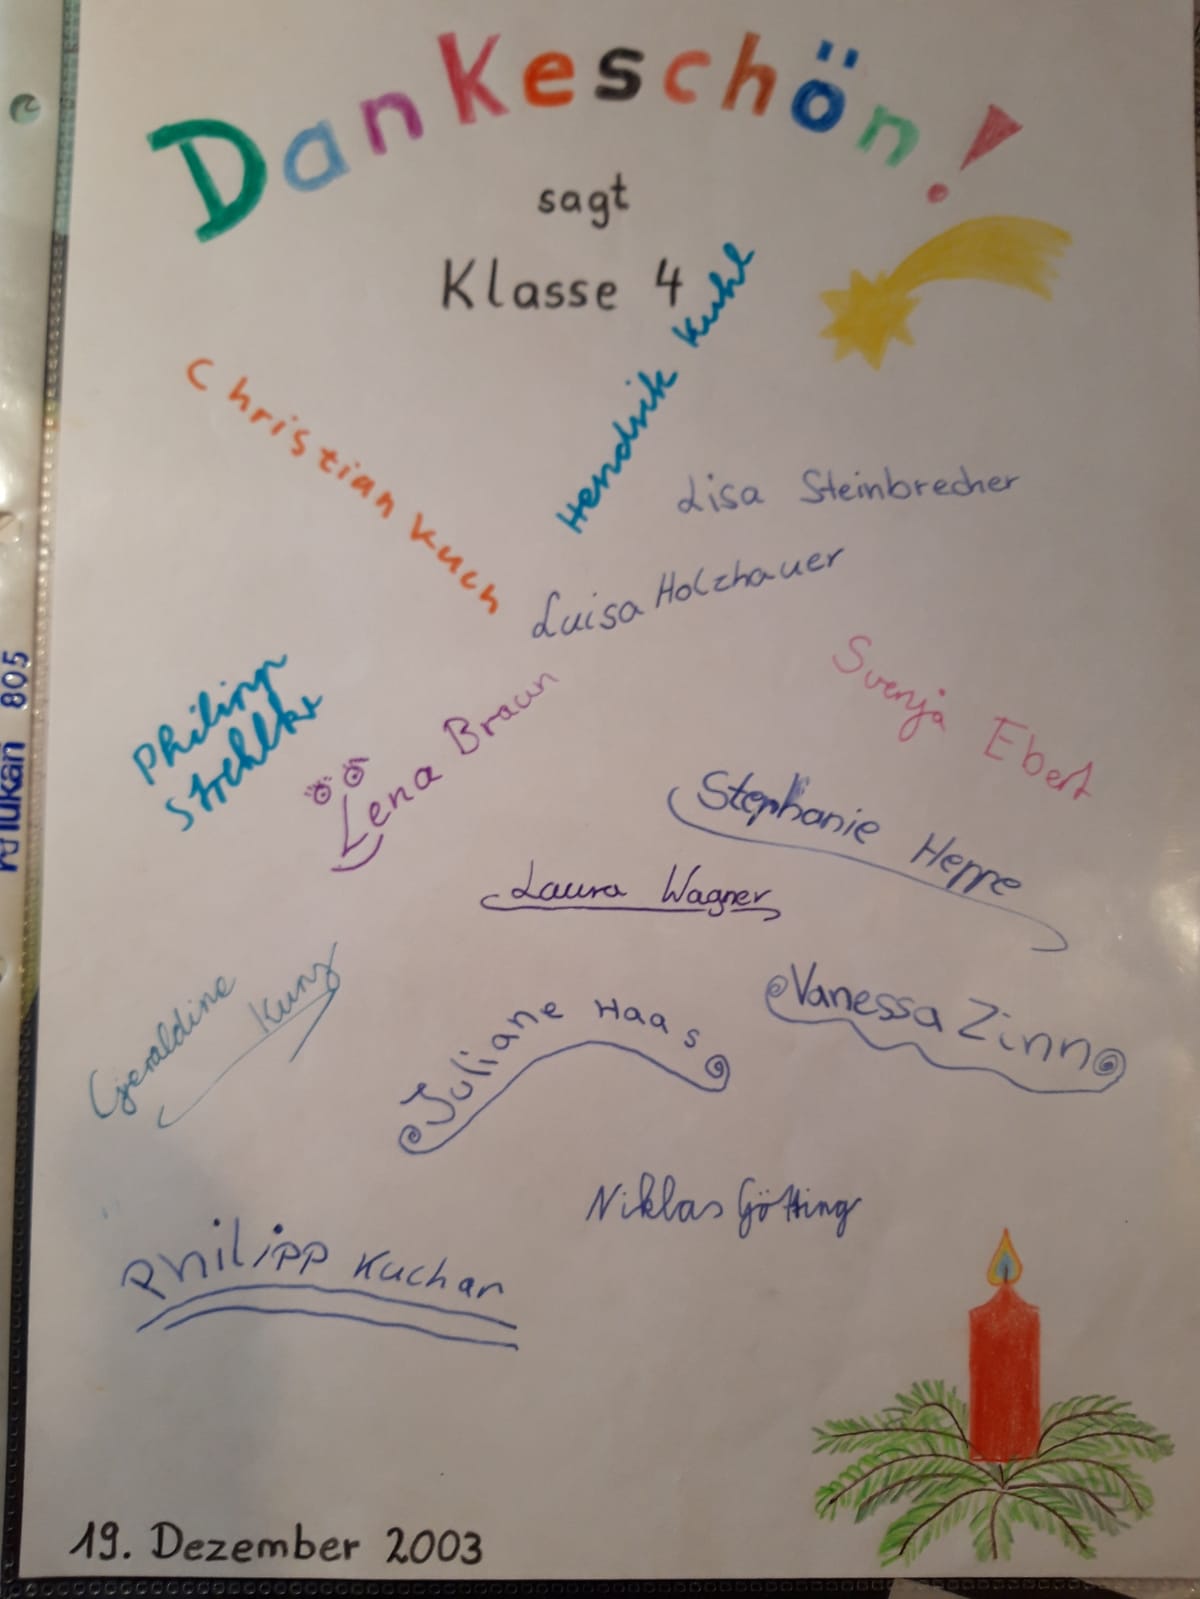 Dankeschön!
sagt
Klasse 4
Hendrik Kuhl
Christian Kuch
Lisa Steinbrecher
Luisa Holzhauer
Svenja Ebert
Philipp
Strehlke
Lena Braun
Stephanie Heppe
Laura Wagner
Geraldine Kunz
Juliane Haas
Vanessa Zinn
Niklas Götting
Philipp Kuchar
19. Dezember 2003
805